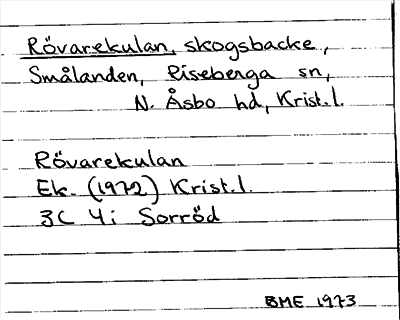 Rövarekulan, skogsbacke,
Smålanden, Riseberga sn,
N. Åsbo hd, Krist. l.
Rövarekulan
Ek. (1972) Krist. l.
3C 4i Sorröd
BME 1973